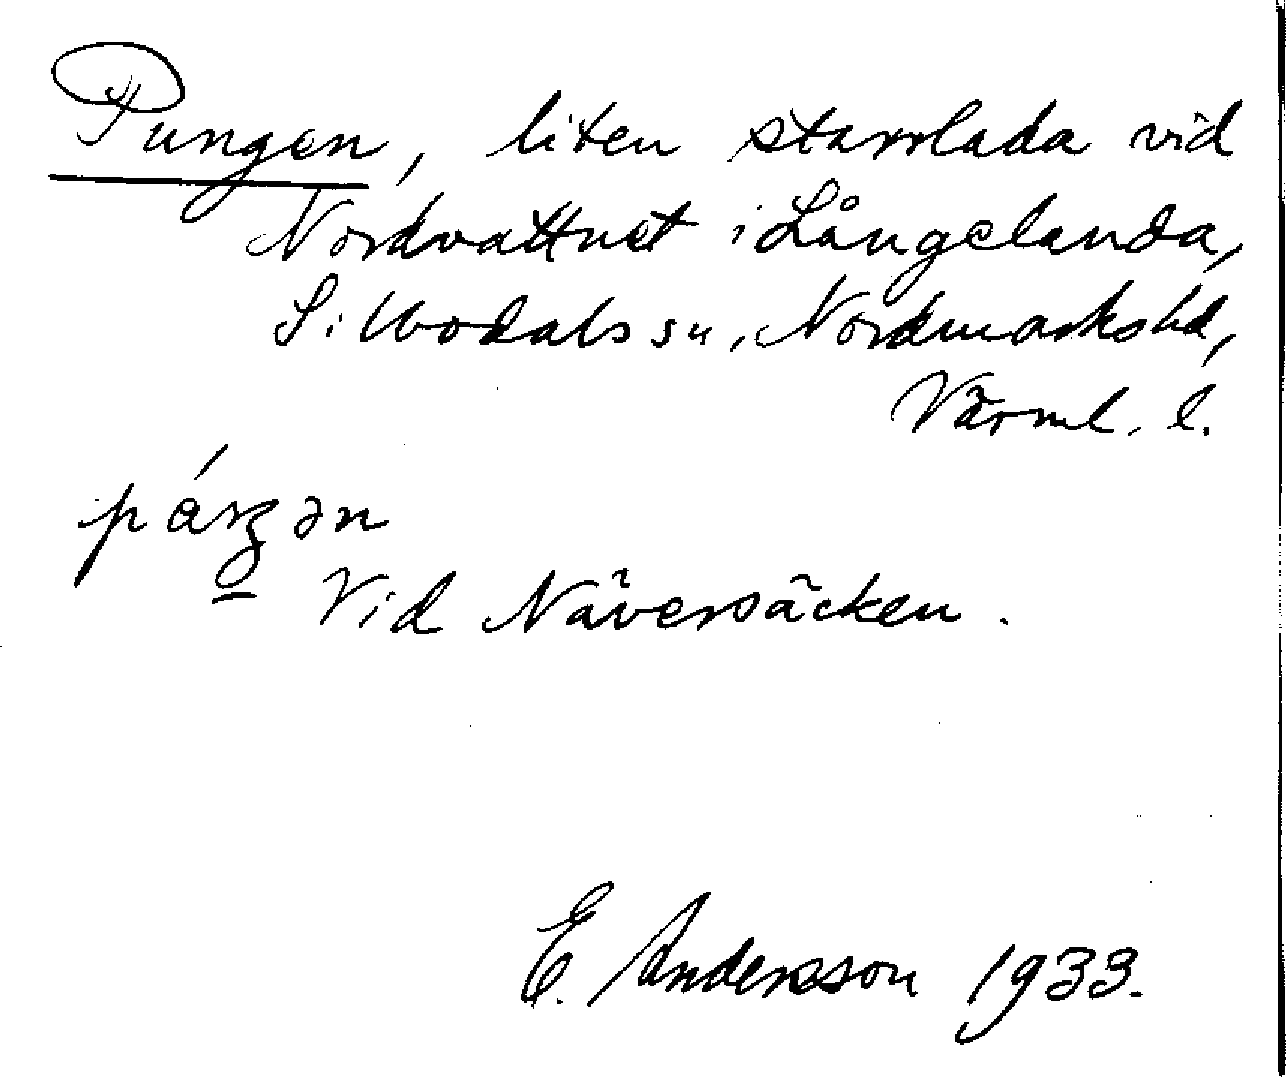 Pungen, liten starrlada vid
Nordvattnet i Långelanda,
Sillbodals sn, Nordmarks hd,
Värml. l.
Vid Näversäcken.
E. Andersson 1933.